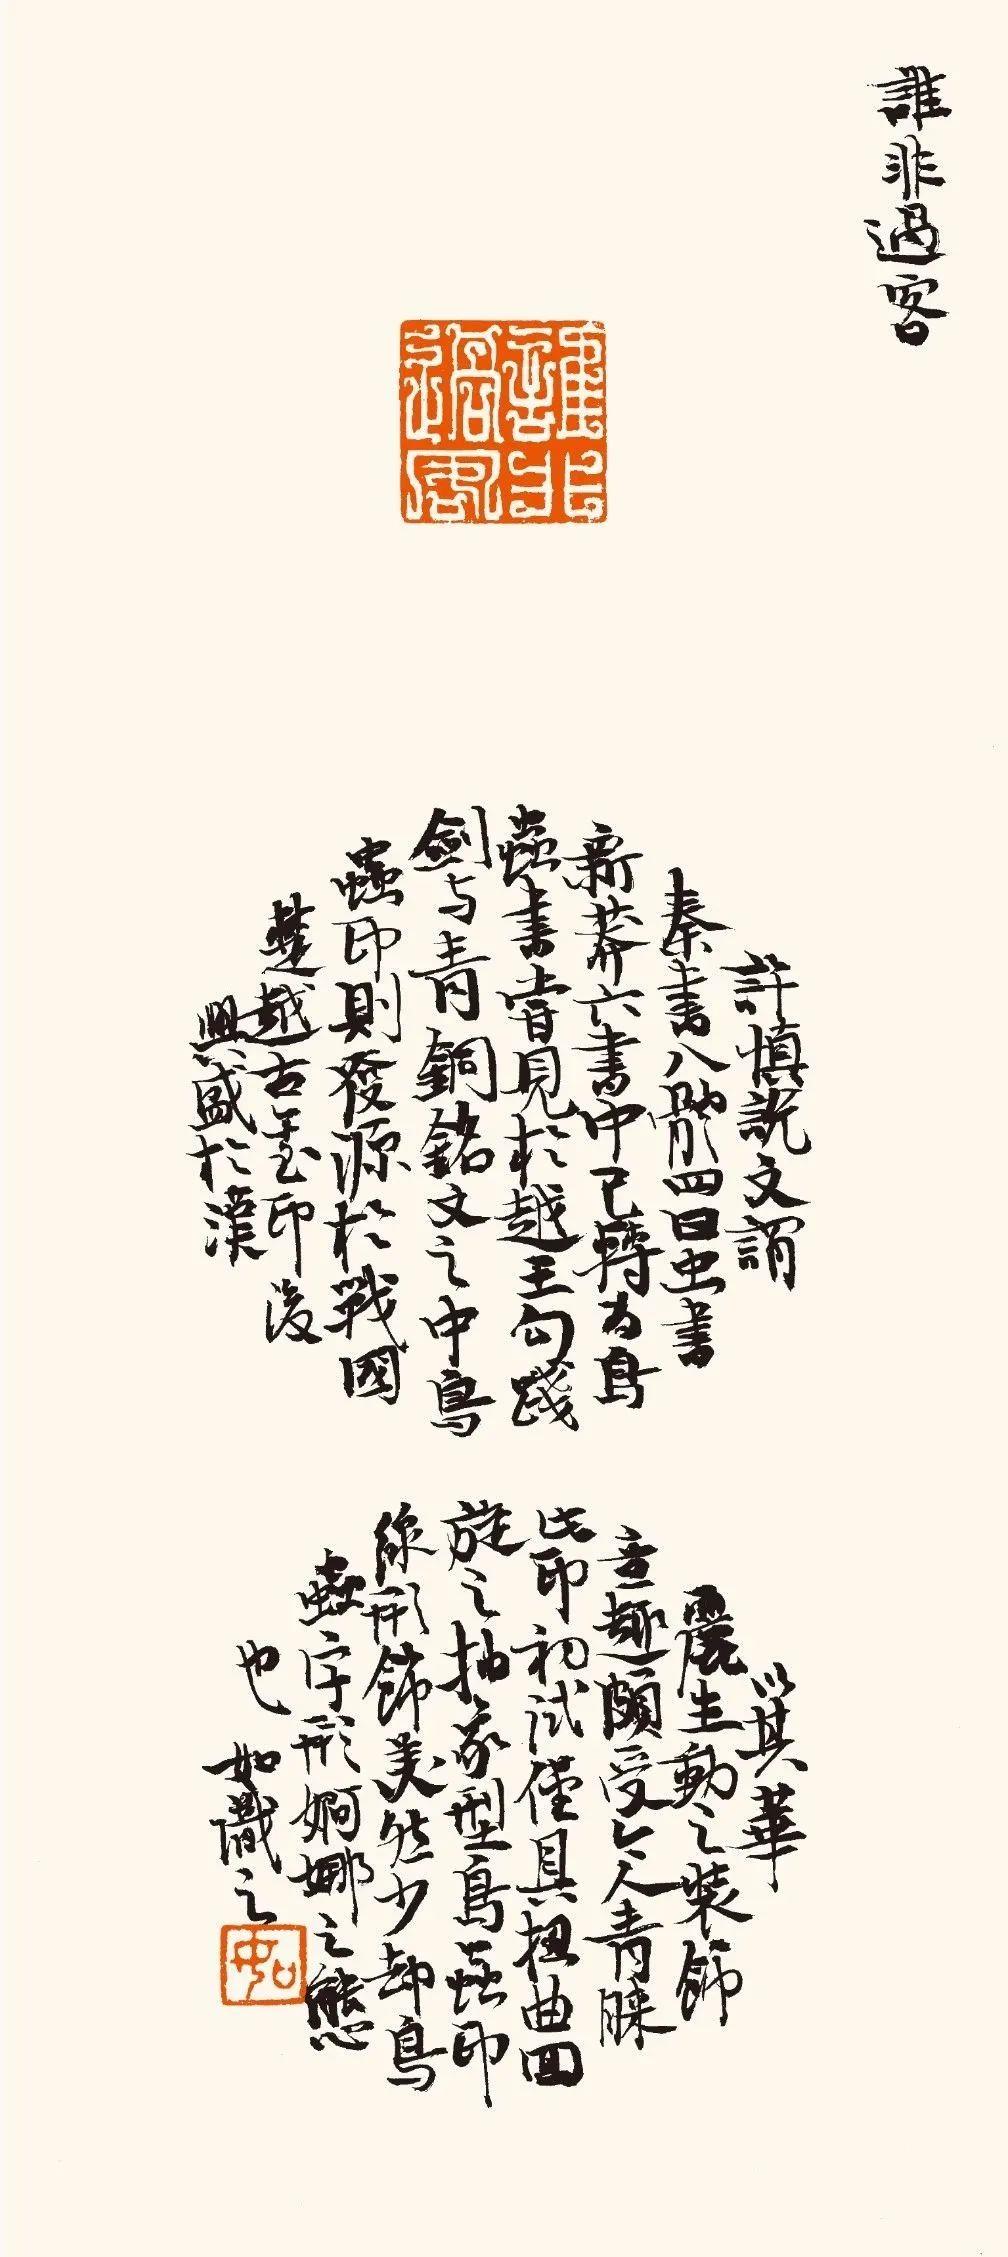 誰非過客
誰非
過客
許慎説文謂
秦書八體四曰虫書
新莽六書中已轉為鳥
蟲書嘗見於越王勾踐
劍与青銅銘文之中鳥
蟲印則發源於戰國
楚越古璽印後
興盛於漢
以其華
麗生動之裝飾
意趣頗受今人青睞
此印初試僅具扭曲回
旋之抽象型鳥蟲印
線形飾美然少却鳥
蟲字形婀娜之態
也如識之
如